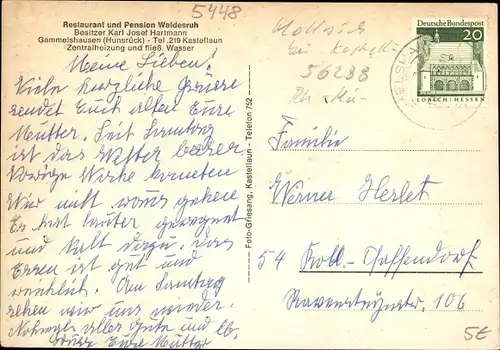 5448
Restaurant und Pension Waldesruh
Besitzer Karl Josef Hartmann
Gammelshausen (Hunsrück) - Tel. 219 Kastellaun
Zentralheizung und fließ. Wasser
Meine Lieben!
Viele herzliche Grüsse
sendet Euch allen Eure
Mutter. Seit Samstag
ist das Wetter besser
Vorige Woche konnten
Wir nicht gehen
Es hat lauter geregnet
und kalt dazu. das
Essen ist gut und
reichlich. Am Samstag
sehen wir uns wieder.
Nochmals alles Gute und
Eure Mutter
Foto-Griesang, Kastellaun - Telefon 752
bei Kastell-
56288
Deutsche Bundespost
20
LORSCH/HESSEN
Familie
Werner Herbst
54 Kobl.-Pfaffendorf
Ravensteynstr. 106
5€